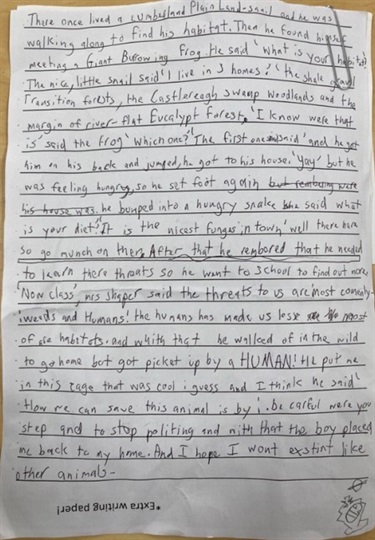 There once lived a cumberland Plain Land-snail and he was
walking along to find his habitat. Then he found himself
meeting a Giant Burowing frog. He said 'what is your habitat?
The nice, little snail said 'I live in 3 homes!' 'the shale gravel
Transition forests, the Castlereagh swamp woodlands and the
margin of river-flat Eucalypt forest. 'I know were that
is' said the frog 'which one?' 'The first one' snid' and he get
him on his back and jumped, he got to his house. 'Yay' but he
was feeling hungrey, so he set foot again but rembering were
his house was. he bumped into a hungry snake she said what
is your diet? 'It is the nicest funges in town' well there here
so go munch on them. After that he rembored that he needed
to learn there threats so he want to school to find out more.
'Now class' mrs shaper said the threats to us are: most comenly
weeds and Humans! the humans has made us lose the most
of are habitats. and whith that he walked of in the wild
to go home bot got picket up by a HUMAN! He put me
in this cage that was cool i guess and I think he said
'How we can save this animal is by 1. be carful were you
step and to stop politing and with that the boy placed
me back to my home. And I hope I wont exstint like
other animals-
*Extra writing paper!